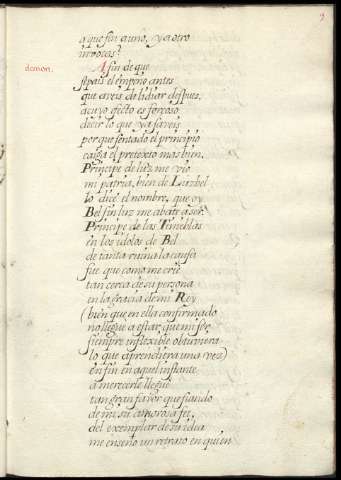 9
a que fin a uno, y a otro
invocas?
demon. A fin de que
sepais el empeño antes
que aveis de lidiar despues,
a cuyo efecto es forçoso
decir lo que ya saveis
porque sentado el principio
caiga el pretexto mas bien.
Principe de luz me vio
mi patria, bien de Luzbel
lo dice el nombre, que oy
Bel sin luz me abate a ser
Principe de las Tinieblas
en los idolos de Bel
de tanta ruina la causa
fue que como me crie
tan cerca de su persona
en la gracia de mi Rey
(bien que en ella confirmado
no llegue a estar, que mi ser
siempre inflexible observara
lo que aprendiera una vez)
en fin en aquel instante
a merecerle llegue
tan gran favor que fiando
de mi su amorosa fee,
del exemplar de su idea
me enseño un retrato en quien